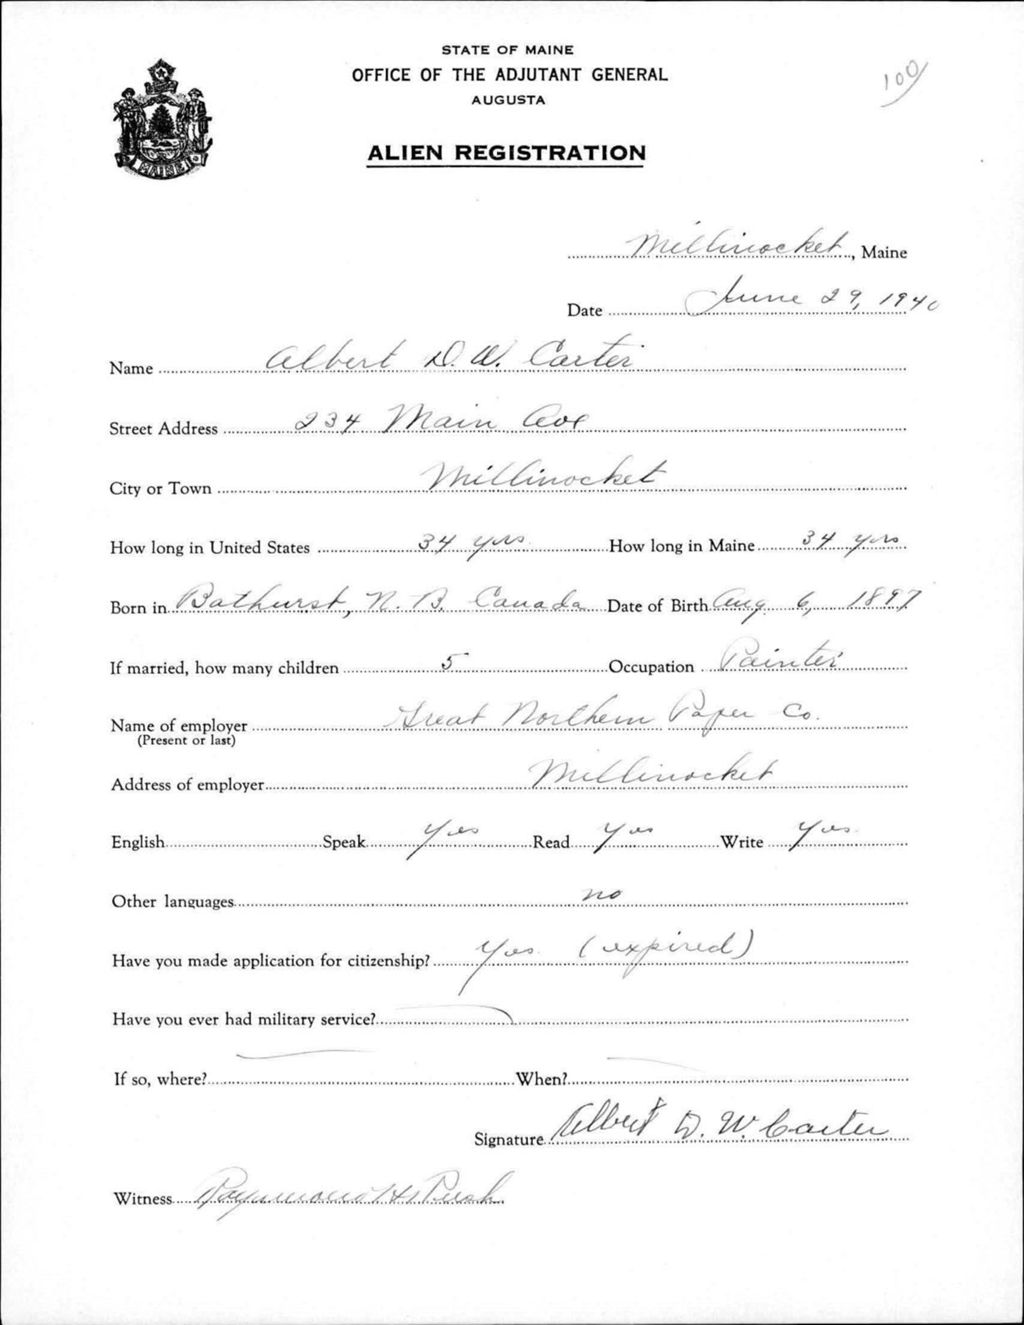 STATE OF MAINE
OFFICE OF THE ADJUTANT GENERAL
AUGUSTA
100
ALIEN REGISTRATION
MAINE
Millinocket, Maine
Date June 29, 1940
Name Albert D. W. Carter
Street Address 234 Main Ave
City or Town Millinocket
How long in United States 34 yrs How long in Maine 34 yrs
Born in Bathurst, N. B. Canada Date of Birth Aug 6, 1897
If married, how many children 5 Occupation Painter
Name of employer Great Northern Paper Co.
(Present or last)
Address of employer Millinocket
English Speak Yes Read Yes Write Yes
Other languages no
Have you made application for citizenship? Yes (expired)
Have you ever had military service?
If so, where? When?
Signature Albert D. W. Carter
Witness Raymond H.